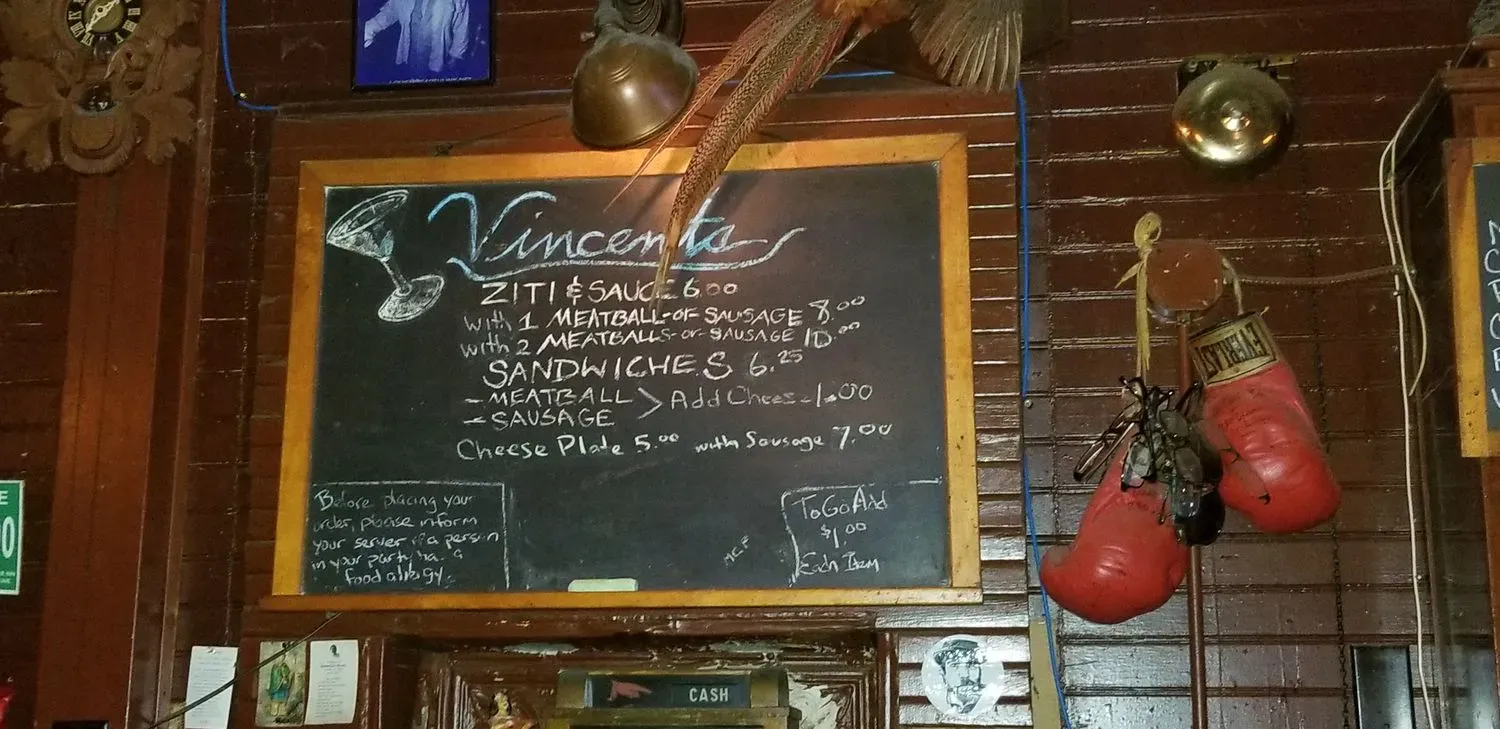 Vincents
ZITI & SAUCE 6.00
with 1 MEATBALL-or-SAUSAGE 8.00
with 2 MEATBALLS-or-SAUSAGE 10.00
SANDWICHES 6.25
- MEATBALL > Add Cheese 1.00
- SAUSAGE
Cheese Plate 5.00 with Sausage 7.00
Before placing your
order, please inform
your server if a person
in your party has a
food allergy.
To Go Add
$1.00
Each Item
M.C.F
CASH
EVERLAST